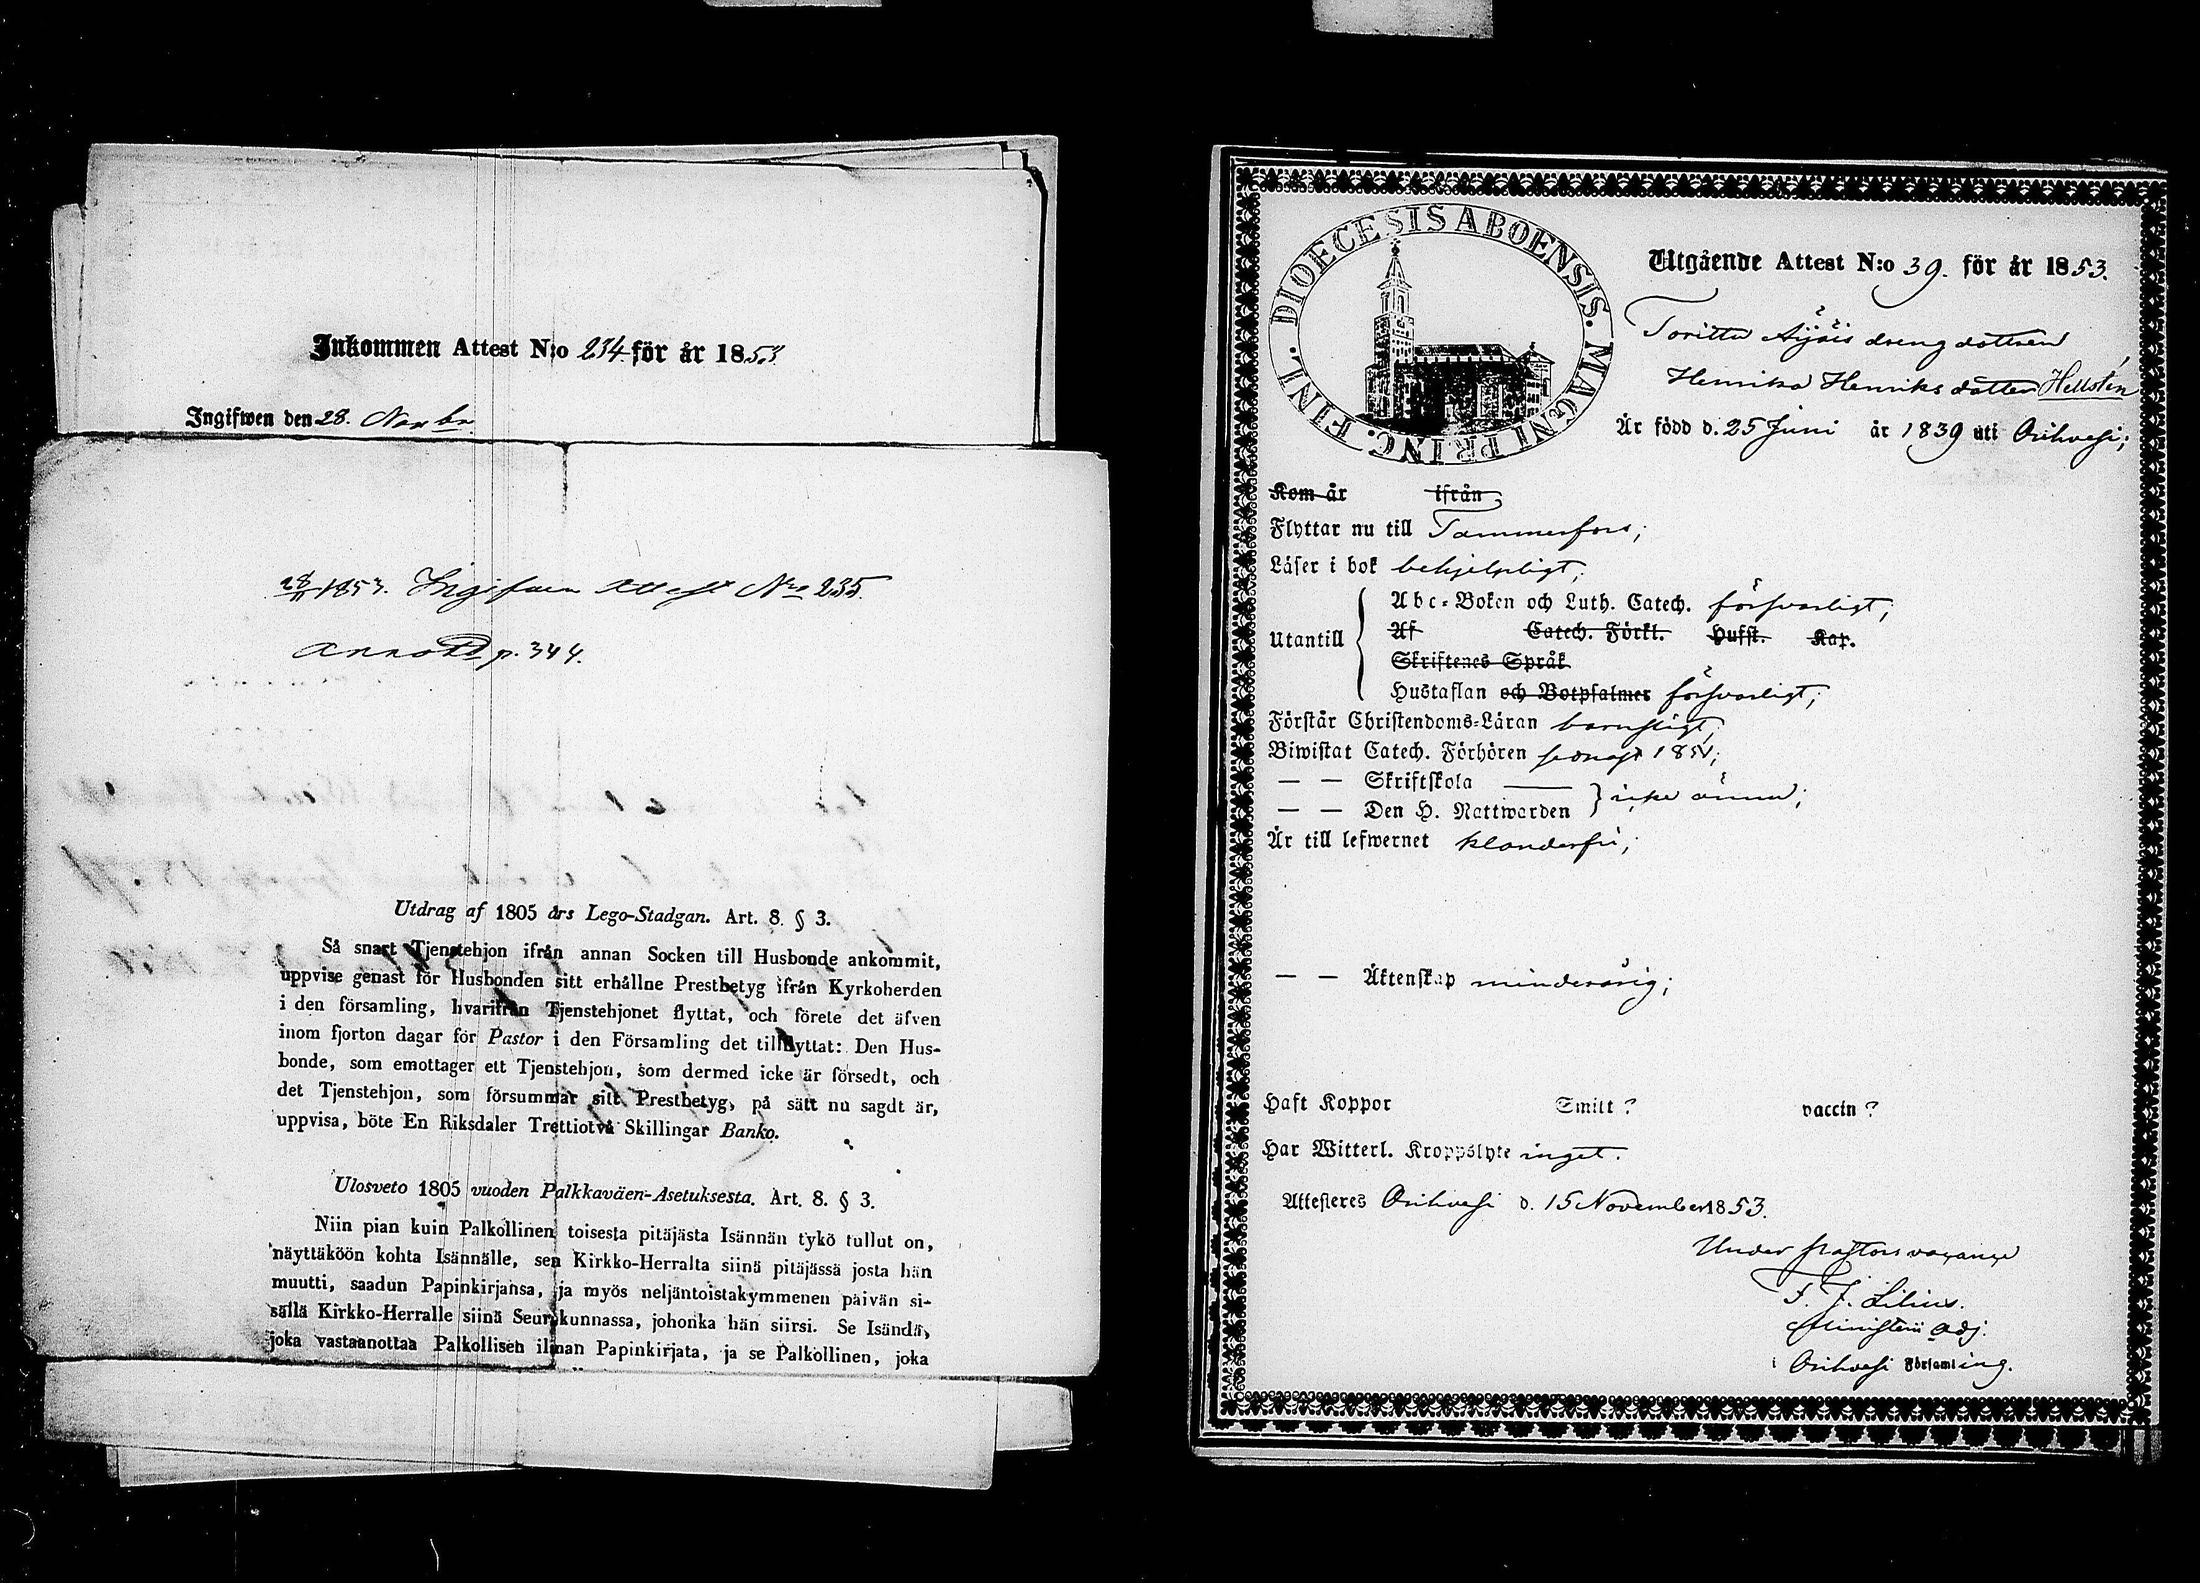 Inkommen Attest N:o 234 för år 1853
Ingifwen den 28. Novbr
28/11 1853. Ingifven Attest No 235.
Annott p. 344.
Utdrag af 1805 års Lego-Stadgan. Art. 8. § 3.
Så snart Tjenstehjon ifrån annan Socken till Husbonde ankommit,
uppvise genast för Husbonden sitt erhållne Prestbetyg ifrån Kyrkoherden
i den församling, hvarifrån Tjenstehjonet flyttat, och förete det äfven
inom fjorton dagar för Pastor i den Församling det tillflyttat: Den Hus-
bonde, som emottager ett Tjenstehjon, som dermed icke är försedt, och
det Tjenstehjon, som försummar sitt Prestbetyg, på sätt nu sagdt är,
uppvisa, böte En Riksdaler Trettiotvå Skillingar Banko.
Ulosveto 1805 vuoden Palkkaväen-Asetuksesta. Art. 8. § 3.
Niin pian kuin Palkollinen toisesta pitäjästa Isännän tykö tullut on,
näyttäköön kohta Isännälle, sen Kirkko-Herralta siinä pitäjässä josta hän
muutti, saadun Papinkirjansa, ja myös neljäntoistakymmenen päivän si-
sällä Kirkko-Herralle siinä Seurakunnassa, johonka hän siirsi. Se Isändä,
joka vastaanottaa Palkollisen ilman Papinkirjata, ja se Palkollinen, joka
DIOECESIS ABOENSIS. MAGNI PRINC. FINL.
Utgående Attest N:o 39. för år 1853.
Toritu Äijäis drengdottren
Henrika Henriksdotter Hellstén
Är född d. 25 Juni år 1839 uti Orihvesi;
Kom år ifrån
Flyttar nu till Tammerfors;
Läser i bok behjelpligt;
Utantill
Abc-Boken och Luth. Catech. försvarligt;
Af Catech. Förkl. Husst. Kap.
Skriftenes Språk
Hustaflan och Botpsalmer försvarligt;
Förstår Christendoms-Läran barnsligt;
Biwistat Catech. Förhören senast 1851;
— — Skriftskola
— — Den H. Nattwarden } icke ännu;
Är till lefwernet klanderfri;
— — Äktenskap minderårig;
Haft Koppor Smitt? vaccin?
Har Witterl. Kroppslyte inget.
Attesteres Orihvesi d. 15 November 1853.
Under pastors vägnar
F. J. Lilius.
Ministerii Adj.
i Orihvesi Församling.